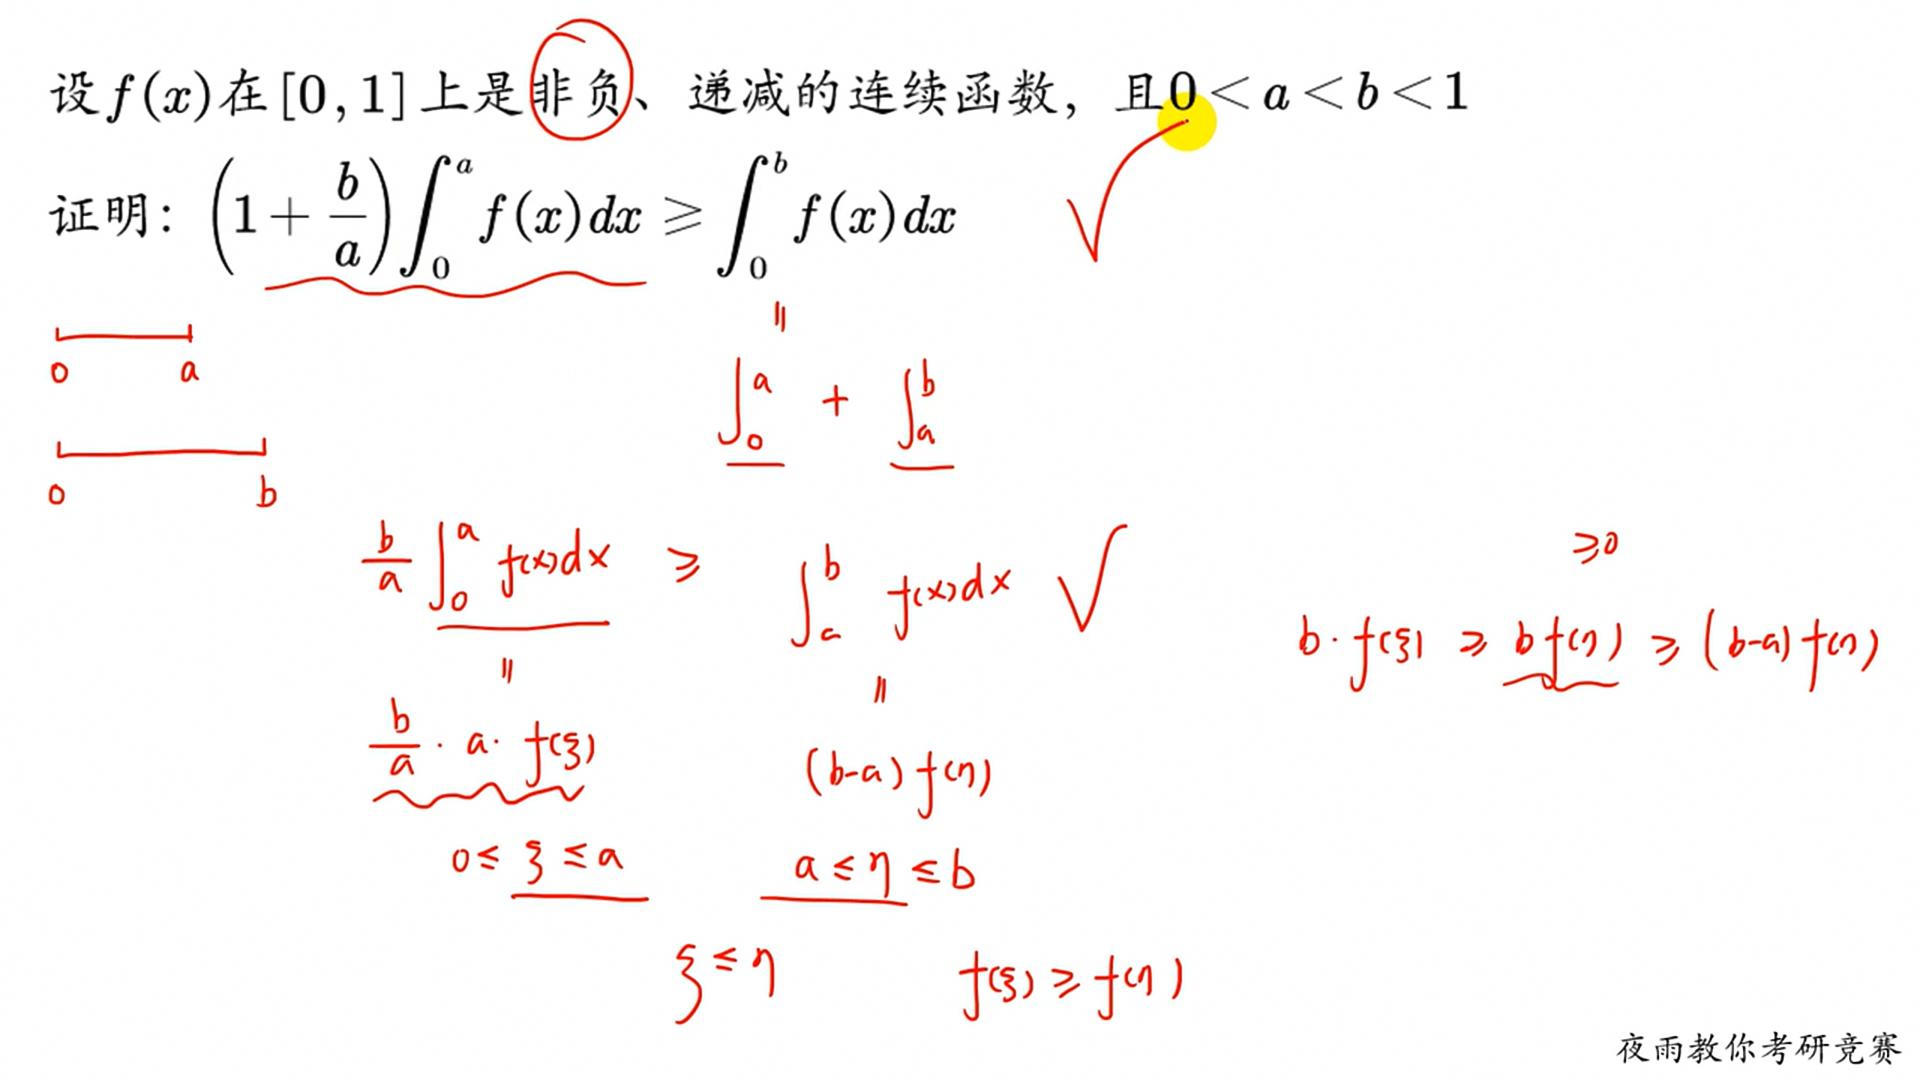 设f(x)在[0,1]上是非负、递减的连续函数，且0<a<b<1
证明：(1+b/a)∫_0^a f(x)dx ≥ ∫_0^b f(x)dx
=
∫_0^a + ∫_a^b
0 a
0 b
b/a ∫_0^a f(x)dx ≥ ∫_a^b f(x)dx
= =
b/a · a · f(ξ) (b-a)f(η)
0≤ξ≤a a≤η≤b
ξ≤η f(ξ)≥f(η)
≥0
b·f(ξ) ≥ bf(η) ≥ (b-a)f(η)
夜雨教你考研竞赛